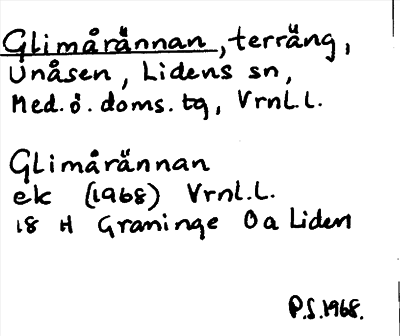 Glimårännan, terräng,
Unåsen, Lidens sn,
Med. ö. doms. tg, Vrnl.l.
Glimårännan
ek (1968) Vrnl.l.
18 H Graninge 0a Liden
P.S. 1968.